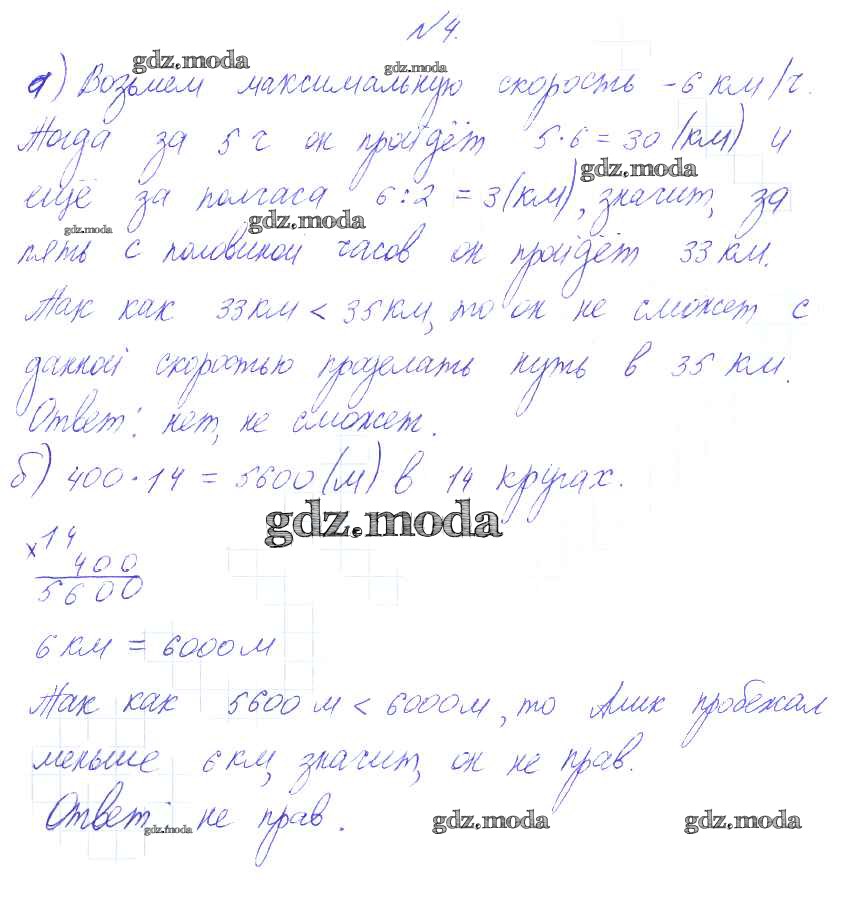 №4.
а) Возьмем максимальную скорость - 6 км/ч.
Тогда за 5 ч он пройдёт 5·6=30 (км) и
ещё за полчаса 6:2=3(км), значит, за
пять с половиной часов он пройдёт 33 км.
Так как 33 км < 35 км, то он не сможет с
данной скоростью проделать путь в 35 км.
Ответ: нет, не сможет.
б) 400·14 = 5600 (м) в 14 кругах.
gdz.moda
gdz.moda
gdz.moda
gdz.moda
gdz.moda
gdz.moda
× 14
400
5600
6 км = 6000 м
Так как 5600 м < 6000 м, то Алик пробежал
меньше 6 км, значит, он не прав.
Ответ: не прав.
gdz.moda
gdz.moda
gdz.moda